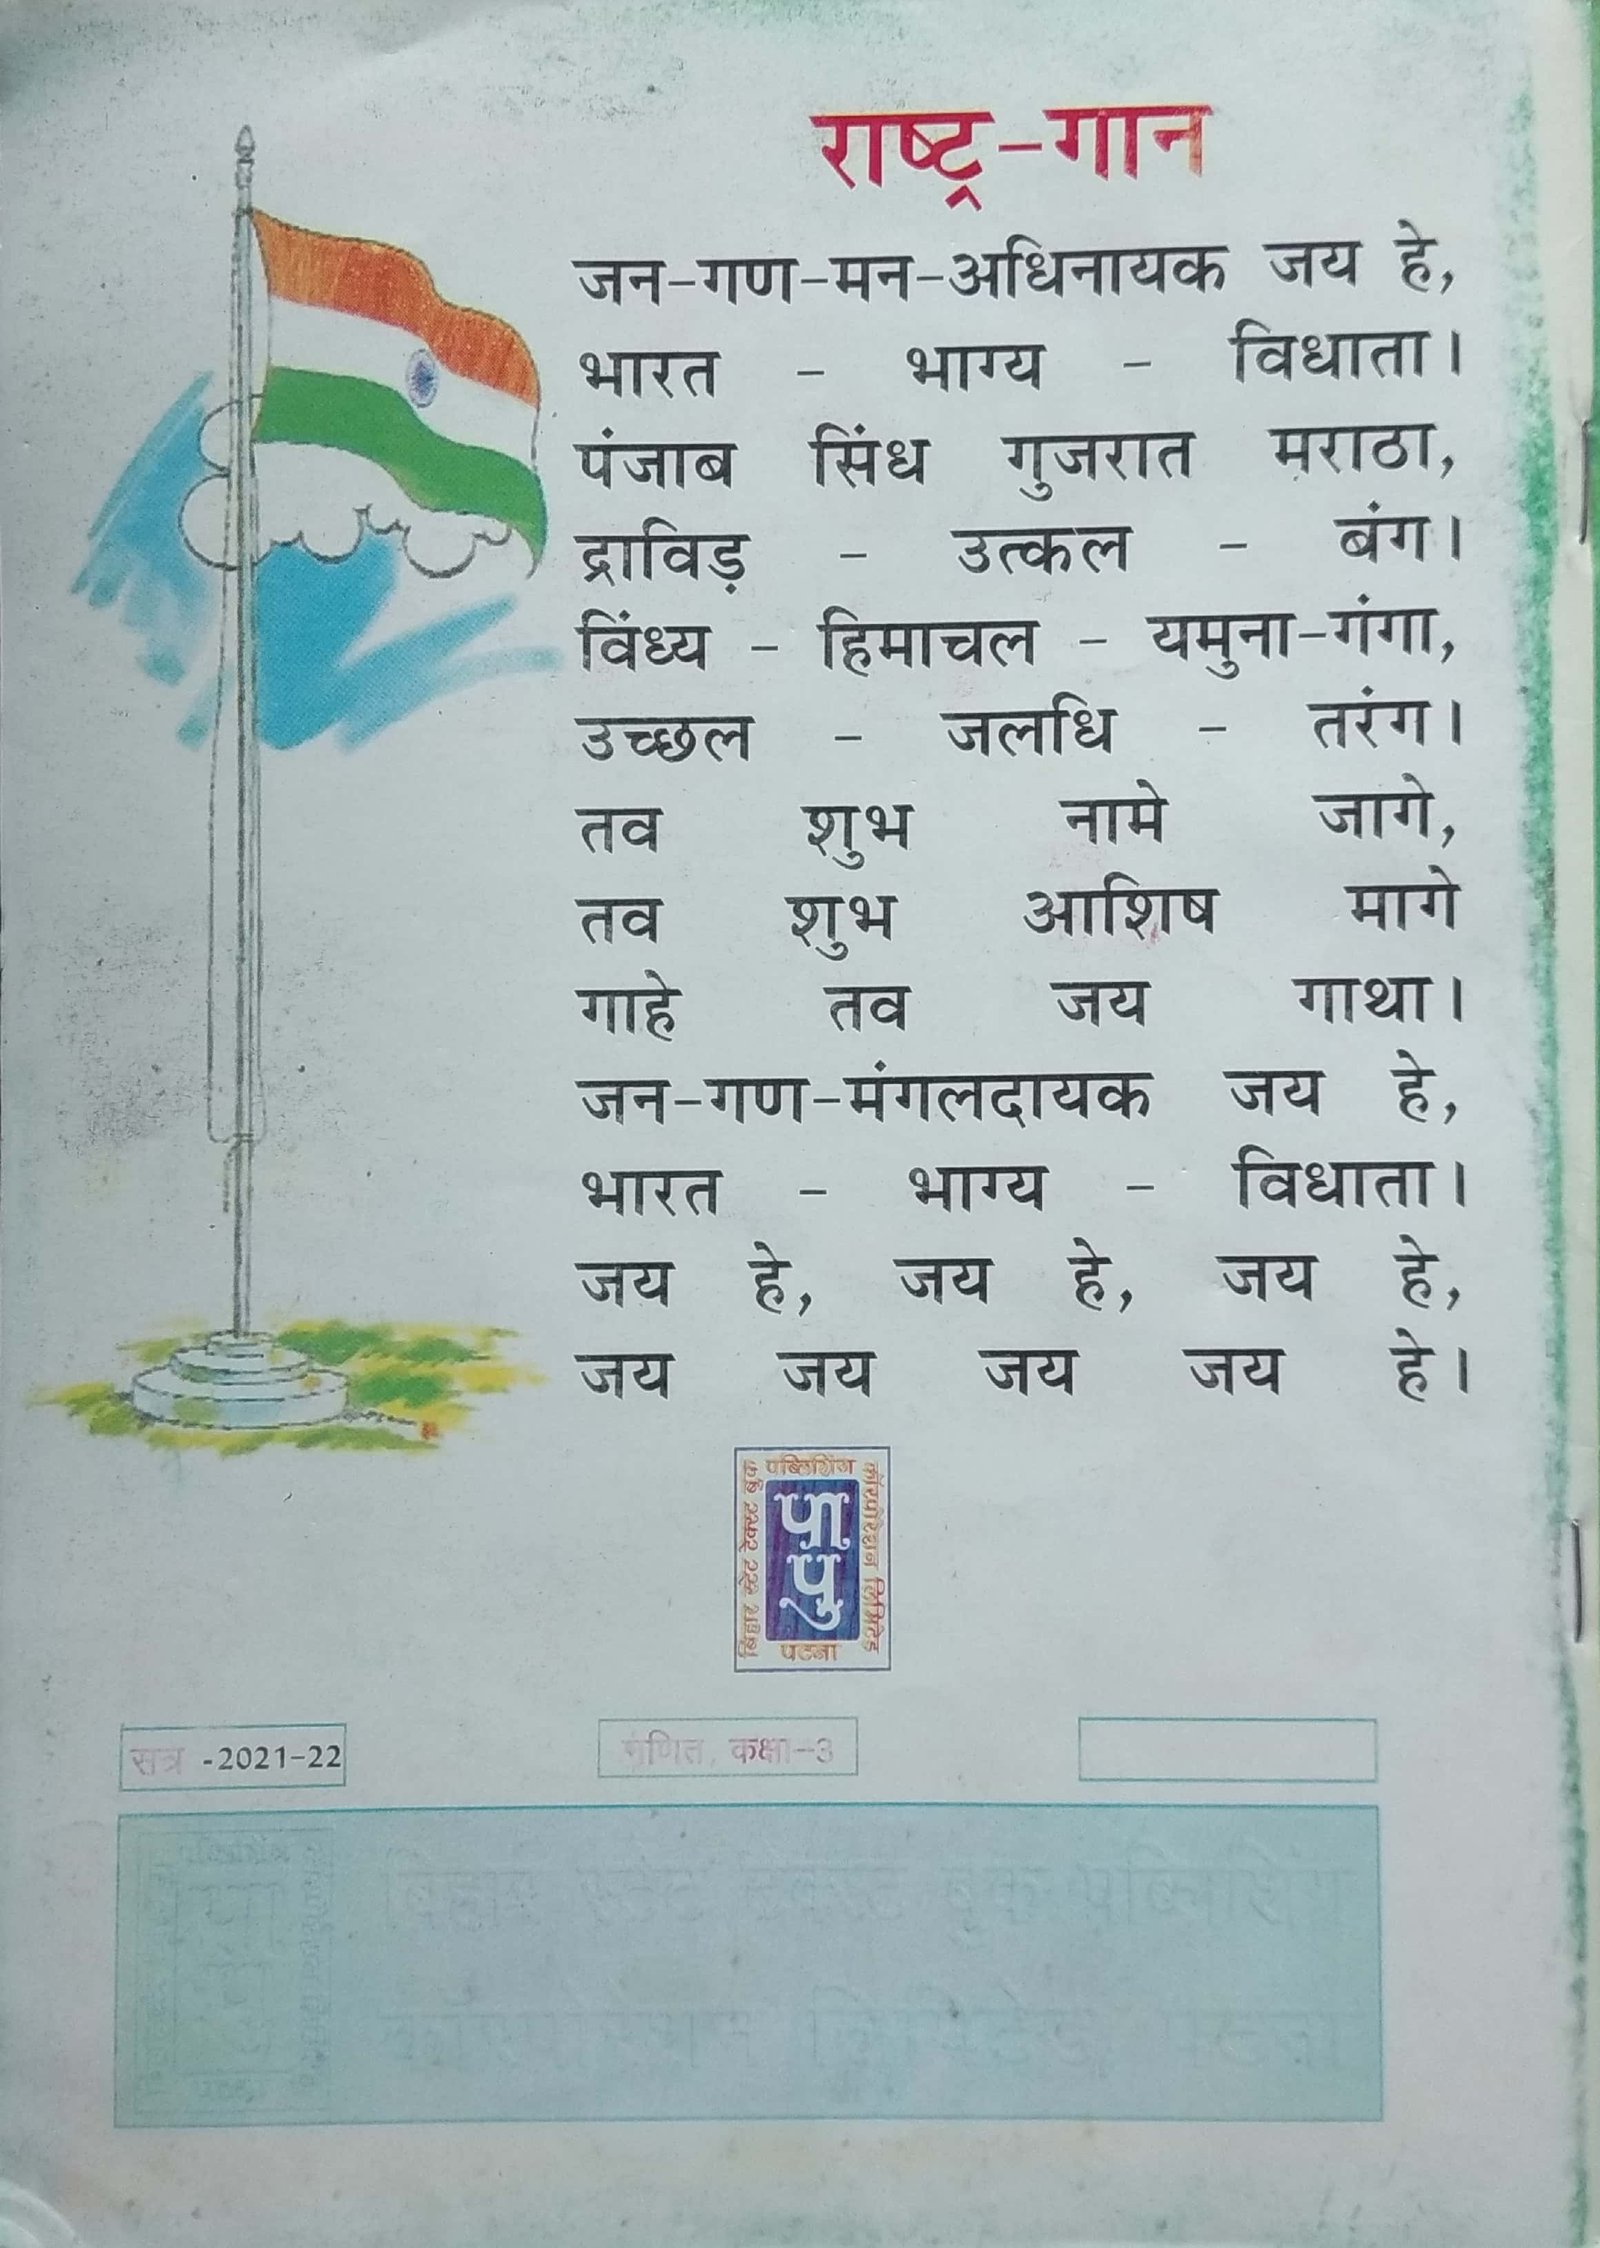 राष्ट्र-गान
जन-गण-मन-अधिनायक जय हे,
भारत - भाग्य - विधाता।
पंजाब सिंध गुजरात मराठा,
द्राविड़ - उत्कल - बंग।
विंध्य - हिमाचल - यमुना-गंगा,
उच्छल - जलधि - तरंग।
तव शुभ नामे जागे,
तव शुभ आशिष मागे
गाहे तव जय गाथा।
जन-गण-मंगलदायक जय हे,
भारत - भाग्य - विधाता।
जय हे, जय हे, जय हे,
जय जय जय जय हे।
बिहार स्टेट टेक्स्ट बुक
पब्लिशिंग
कॉरपोरेशन लिमिटेड
पा
पु
पटना
सत्र -2021-22
गणित, कक्षा-3
बिहार स्टेट टेक्स्ट बुक पब्लिशिंग